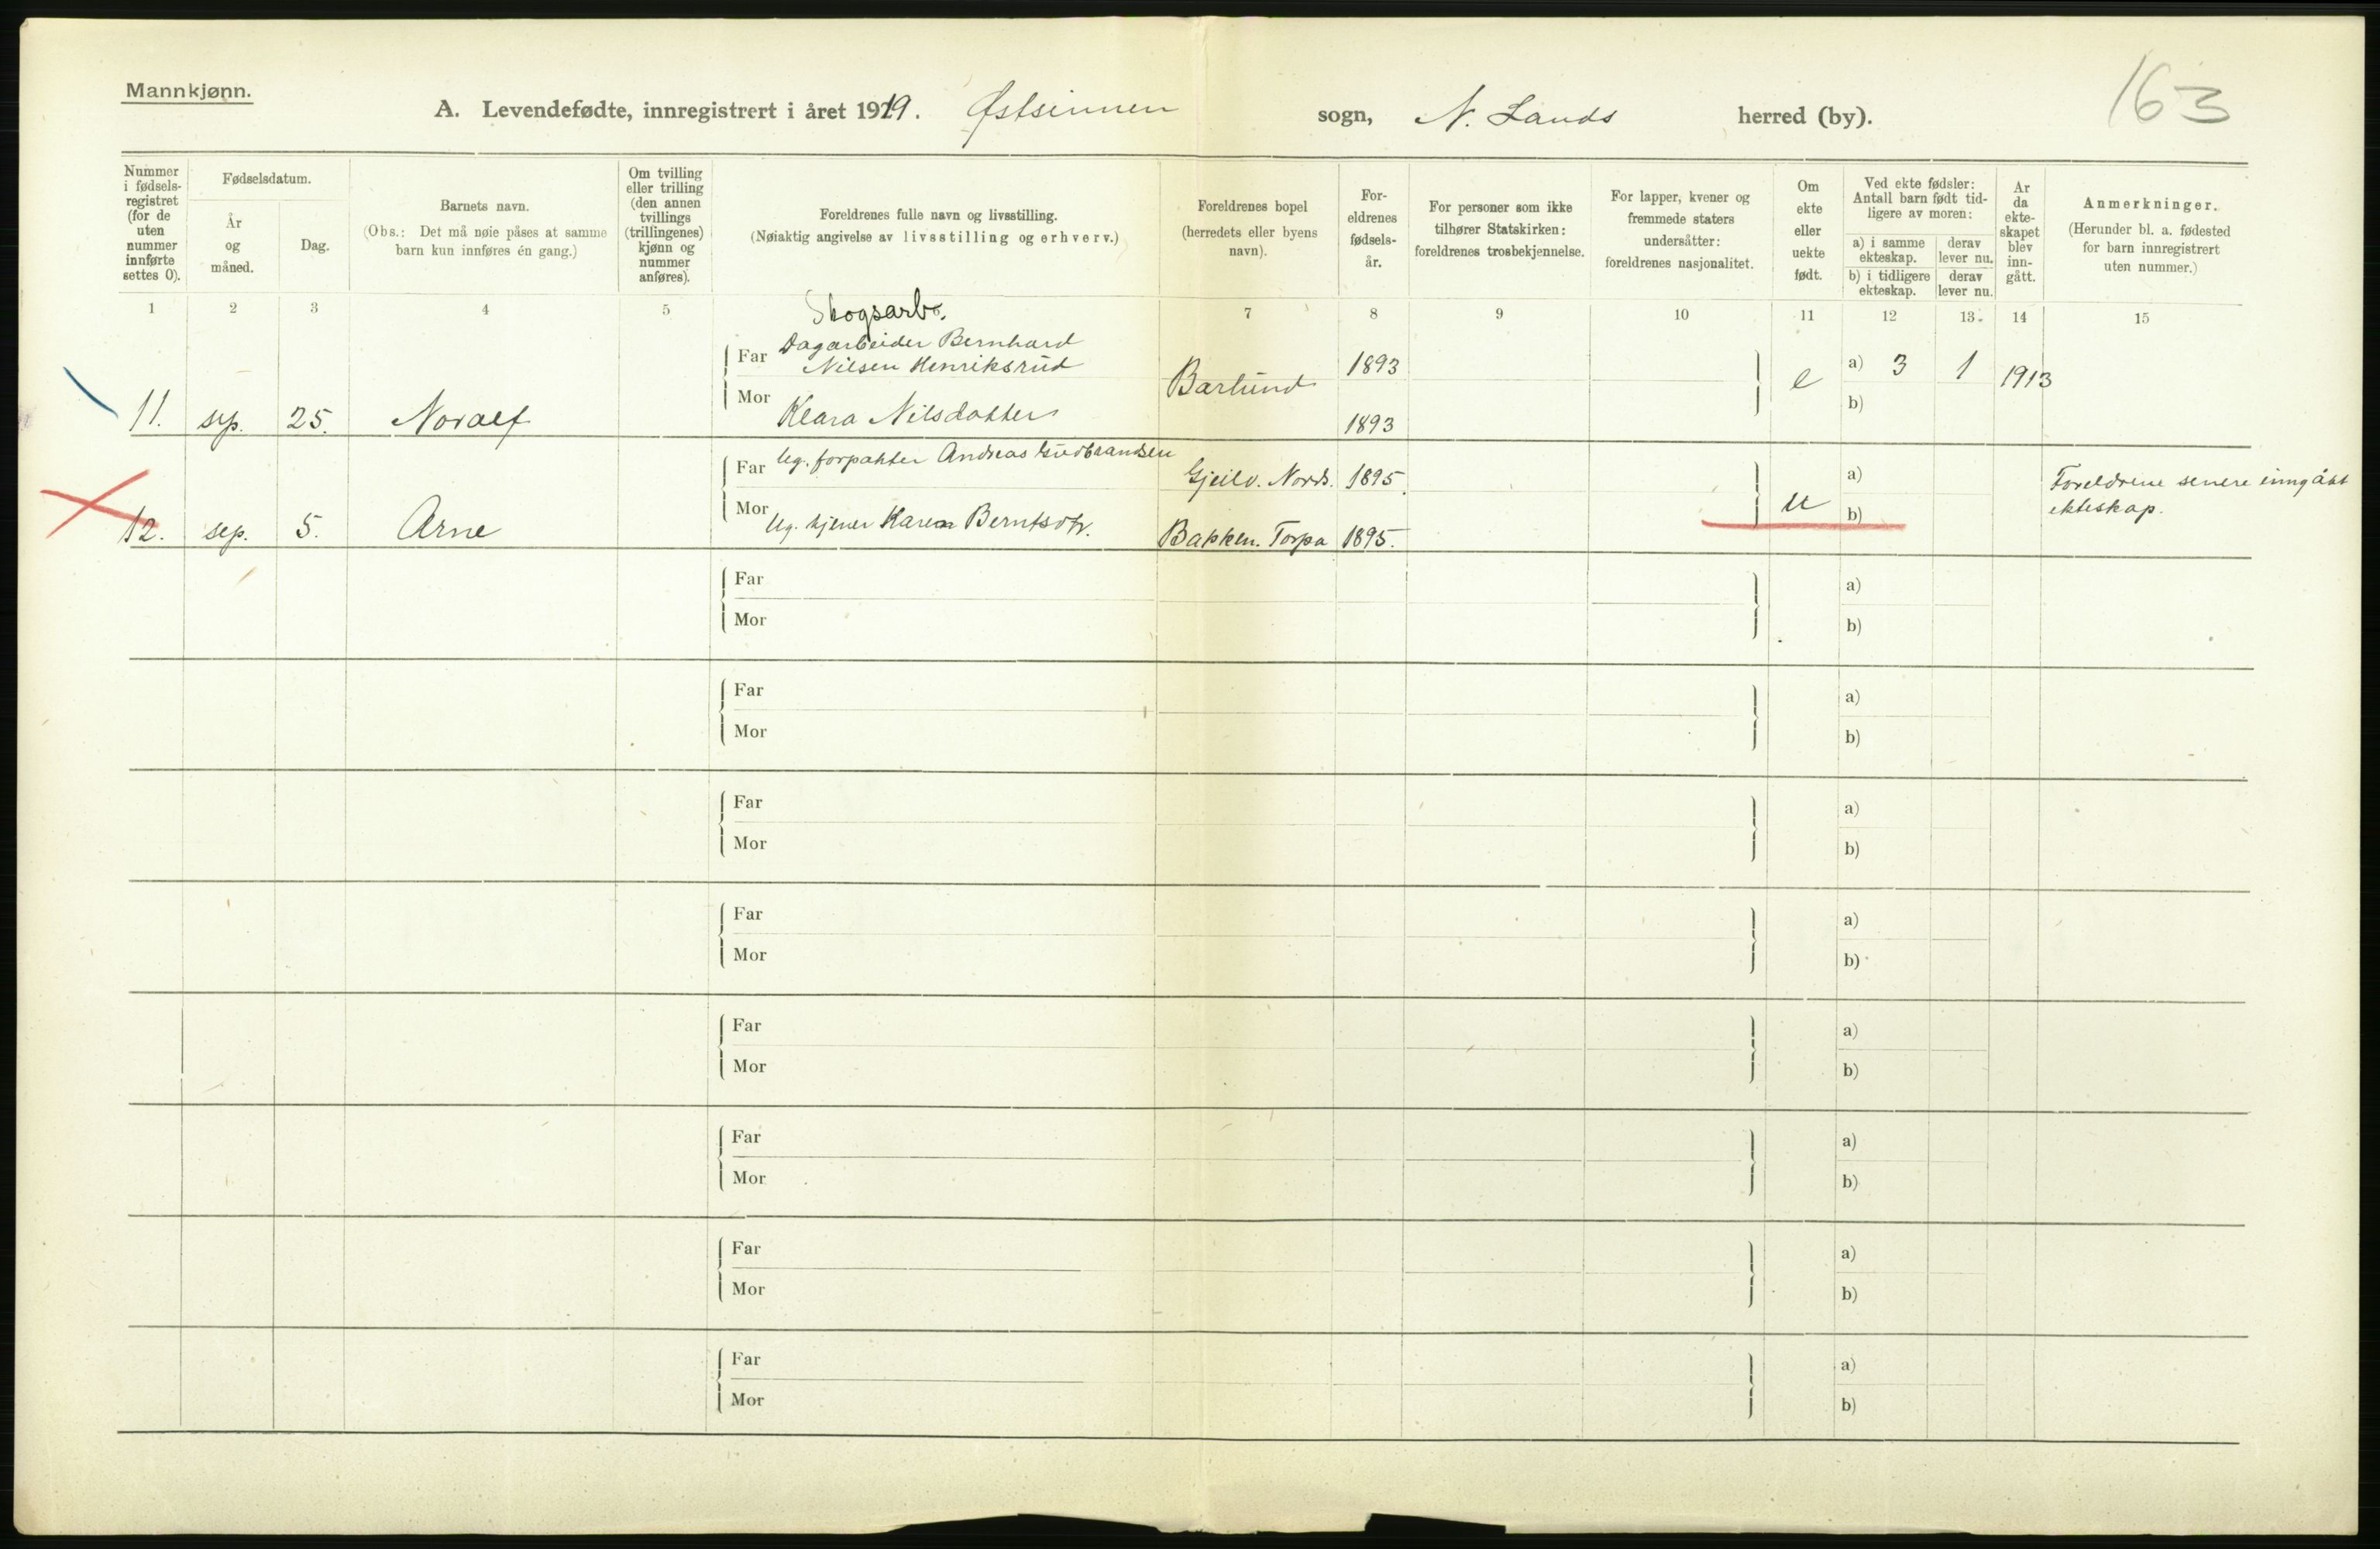 Mannkjønn.
A. Levendefødte, innregistrert i året 1919. Østsinnen sogn, N. Lands herred (by).
163
Nummer i fødsels-registret (for de uten nummer innførte settes 0).
Fødselsdatum.
År og måned.
Dag.
Barnets navn.
(Obs.: Det må nøie påses at samme barn kun innføres én gang.)
Om tvilling eller trilling (den annen tvillings (trillingenes) kjønn og nummer anføres).
Foreldrenes fulle navn og livsstilling.
(Nøiaktig angivelse av livsstilling og erhverv.)
Foreldrenes bopel (herredets eller byens navn).
For-eldrenes fødsels-år.
For personer som ikke tilhører Statskirken: foreldrenes trosbekjennelse.
For lapper, kvener og fremmede staters undersåtter: foreldrenes nasjonalitet.
Om ekte eller uekte født.
Ved ekte fødsler: Antall barn født tid-ligere av moren:
a) i samme ekteskap.
derav lever nu.
b) i tidligere ekteskap.
derav lever nu.
År da ekte-skapet blev inn-gått.
Anmerkninger.
(Herunder bl. a. fødested for barn innregistrert uten nummer.)
1 2 3 4 5 7 8 9 10 11 12 13 14 15
Skogsarb.
Far Dagarbeider Bernhard
Nilsen Henriksrud 1893 a) 3 1 1913
11. sep. 25. Noralf Mor Klara Nilsdatter Barlund 1893 e b)
Far Ug. forpakter Andreas Gudbrandsen Gjeilv. Nords. 1895. a) Foreldrene senere inngått
12. sep. 5. Arne Mor Ug. tjener Karen Berntsdtr. Bakken. Torpa 1895. u b) ekteskap.
Far a)
Mor b)
Far a)
Mor b)
Far a)
Mor b)
Far a)
Mor b)
Far a)
Mor b)
Far a)
Mor b)
Far a)
Mor b)
Far a)
Mor b)